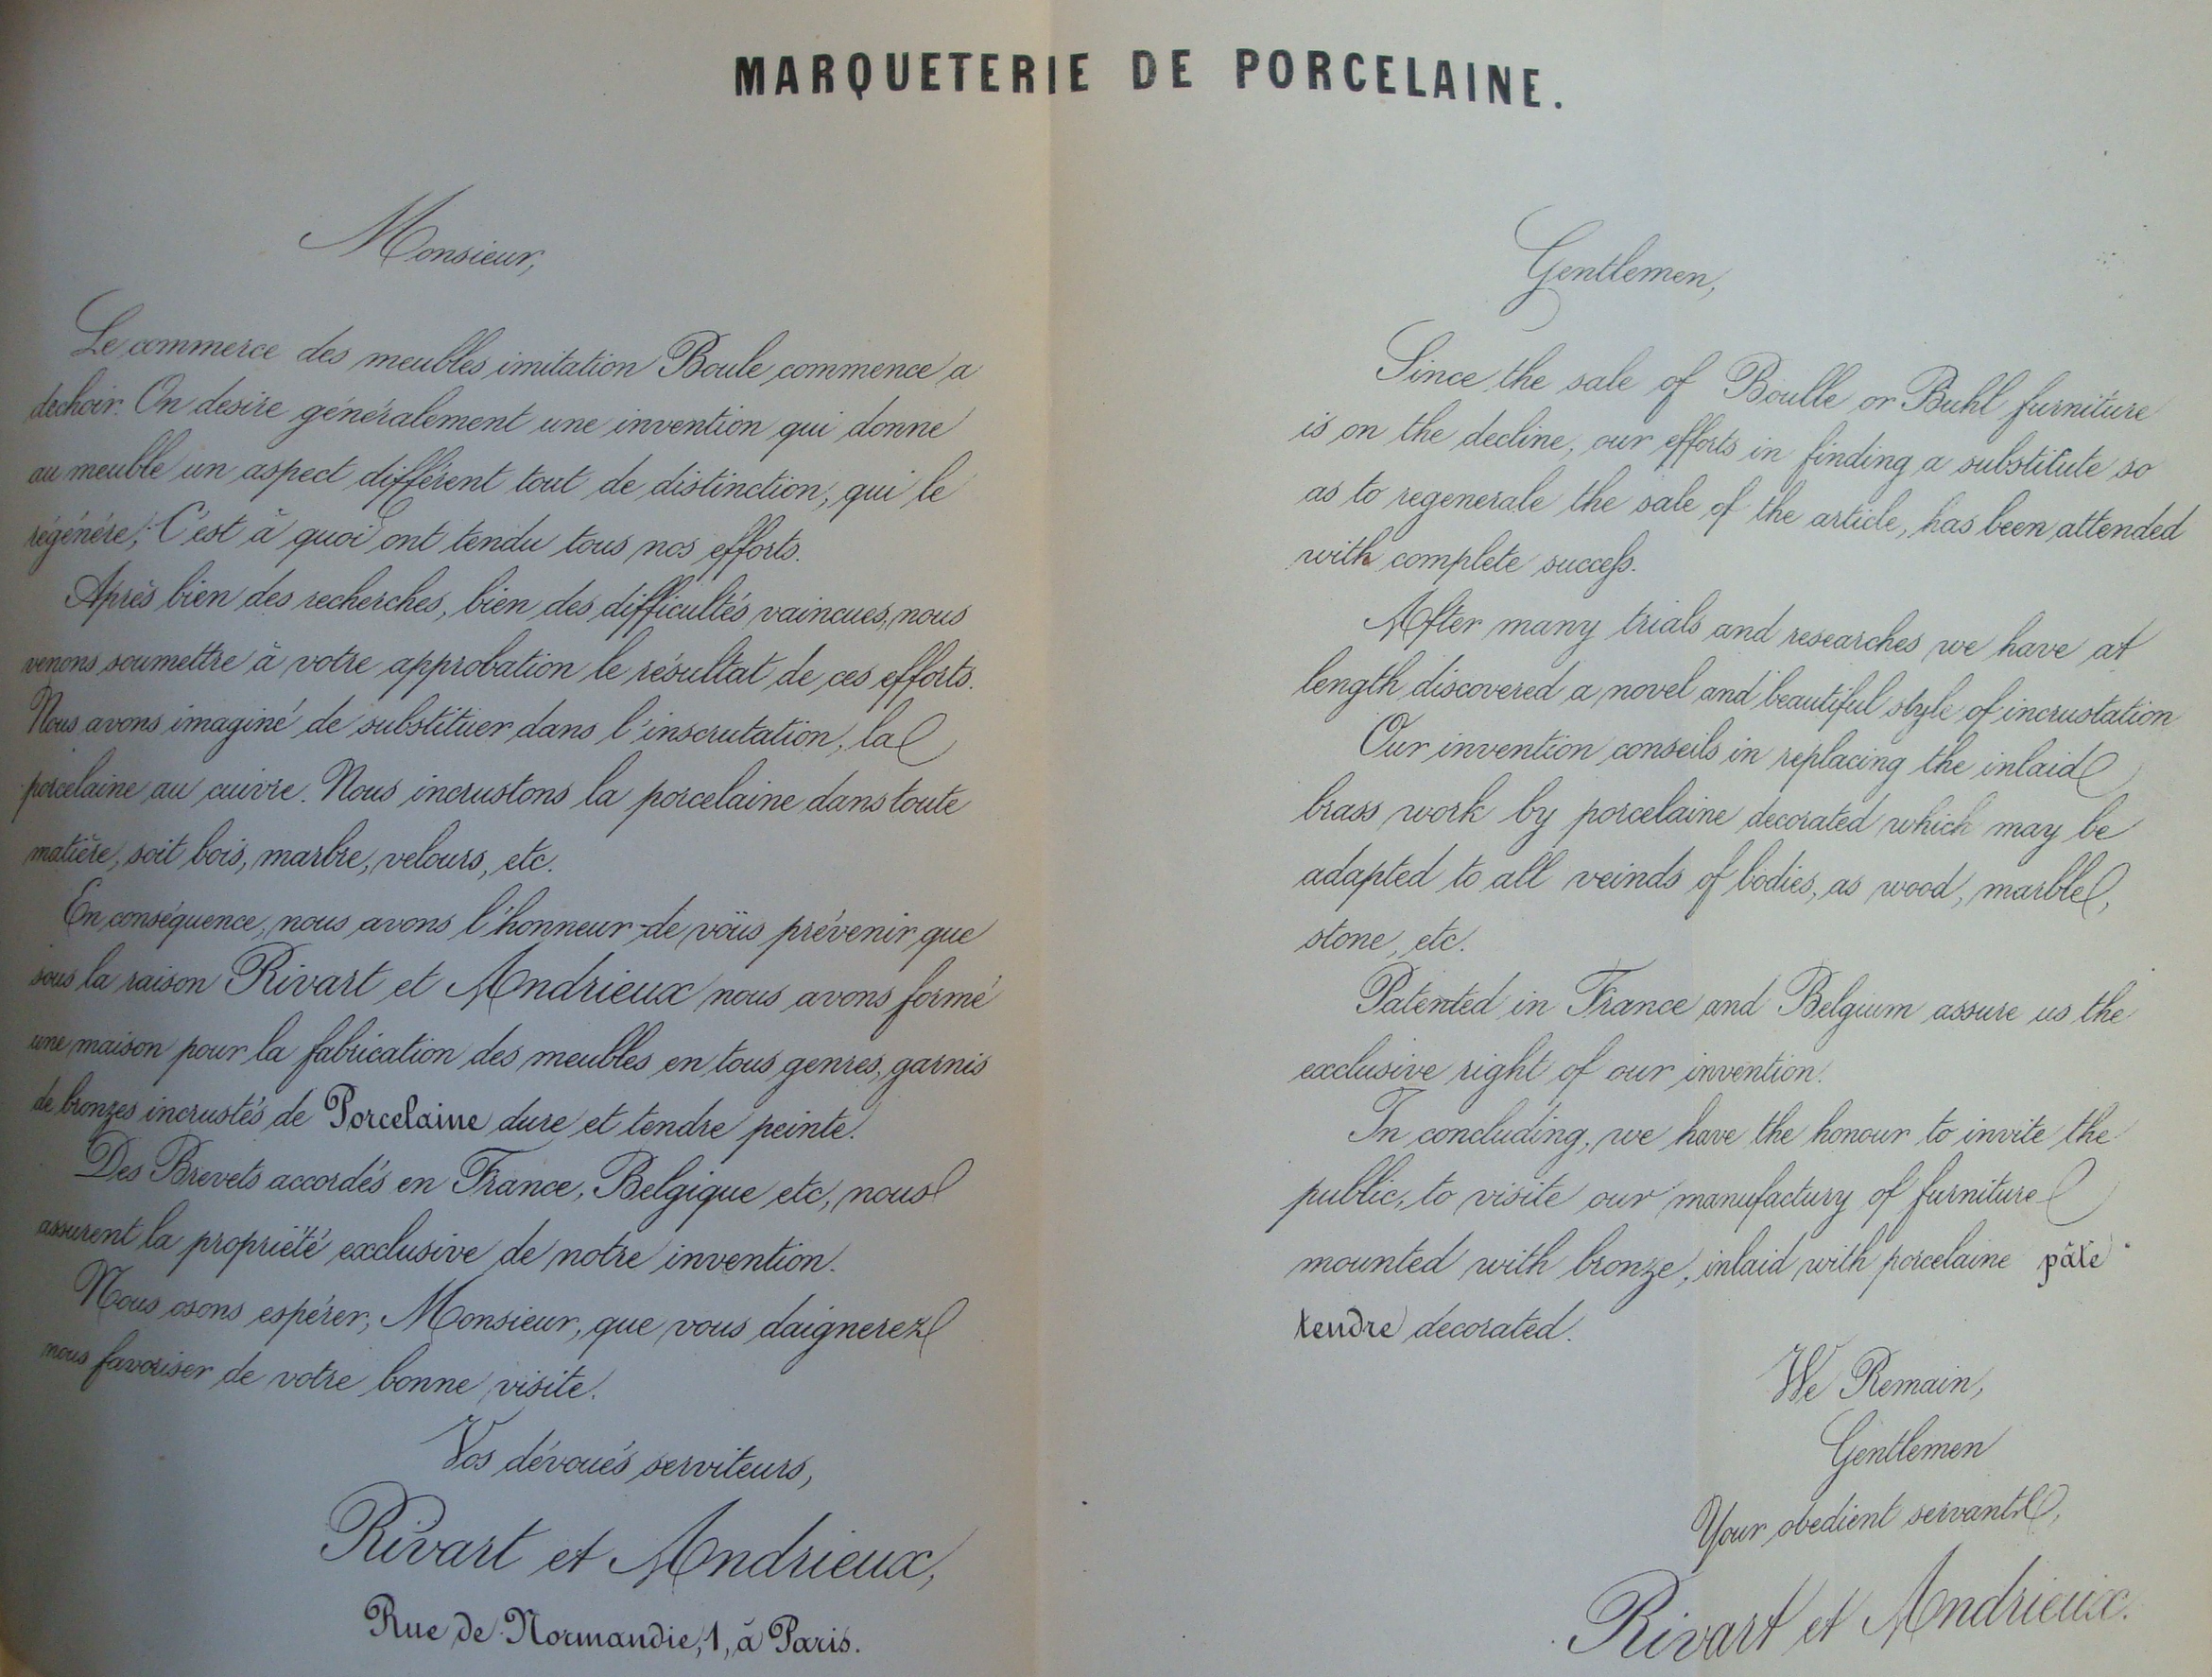 MARQUETERIE DE PORCELAINE.
Monsieur,
Le commerce des meubles imitation Boule commence a
dechoir. On desire généralement une invention qui donne
au meuble un aspect différent tout de distinction, qui le
régénére; C'est à quoi ont tendu tous nos efforts.
Après bien des recherches, bien des difficultés vaincues, nous
venons soumettre à votre approbation le résultat de ces efforts.
Nous avons imaginé de substituer dans l'inscrutation, la
porcelaine au cuivre. Nous incrustons la porcelaine dans toute
matière, soit bois, marbre, velours, etc.
En conséquence, nous avons l'honneur de voüs prévenir que
sous la raison Rivart et Andrieux nous avons formé
une maison pour la fabrication des meubles en tous genres, garnis
de bronzes incrustés de Porcelaine dure et tendre peinte.
Des Brevets accordés en France, Belgique etc, nous
assurent la propriété exclusive de notre invention.
Nous osons espérer, Monsieur, que vous daignerez
nous favoriser de votre bonne visite.
Vos dévoués serviteurs,
Rivart et Andrieux,
Rue de Normandie, 1, à Paris.
Gentlemen,
Since the sale of Boulle or Buhl furniture
is on the decline, our efforts in finding a substitute so
as to regenerale the sale of the article, has been attended
with complete success.
After many trials and researches we have at
length discovered a novel and beautiful style of incrustation
Our invention conseils in replacing the inlaid
brass work by porcelaine decorated which may be
adapted to all veinds of bodies, as wood, marble,
stone, etc.
Patented in France and Belgium assure us the
exclusive right of our invention.
In concluding, we have the honour to invite the
public, to visite our manufactury of furniture
mounted with bronze, inlaid with porcelaine pâte
tendre decorated.
We Remain,
Gentlemen
Your obedient servants,
Rivart et Andrieux.